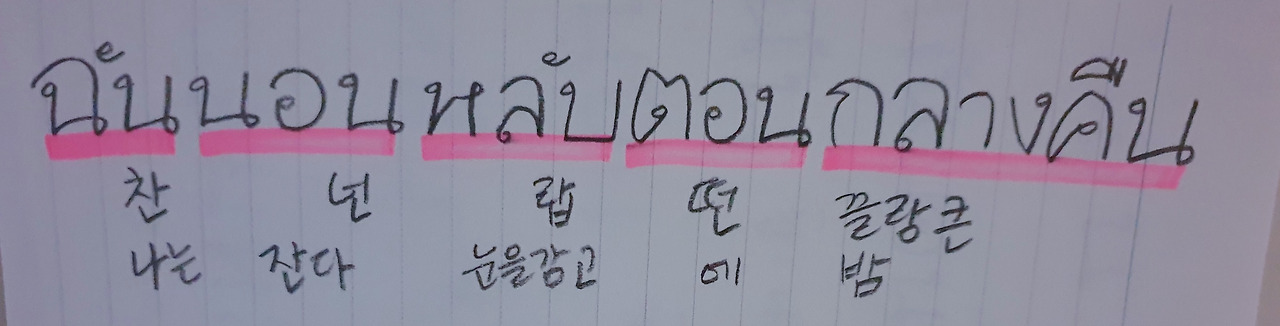 ฉันนอนหลับตอนกลางคืน
찬 넌 랍 떤 끌랑큰
나는 잔다 눈을감고 에 밤